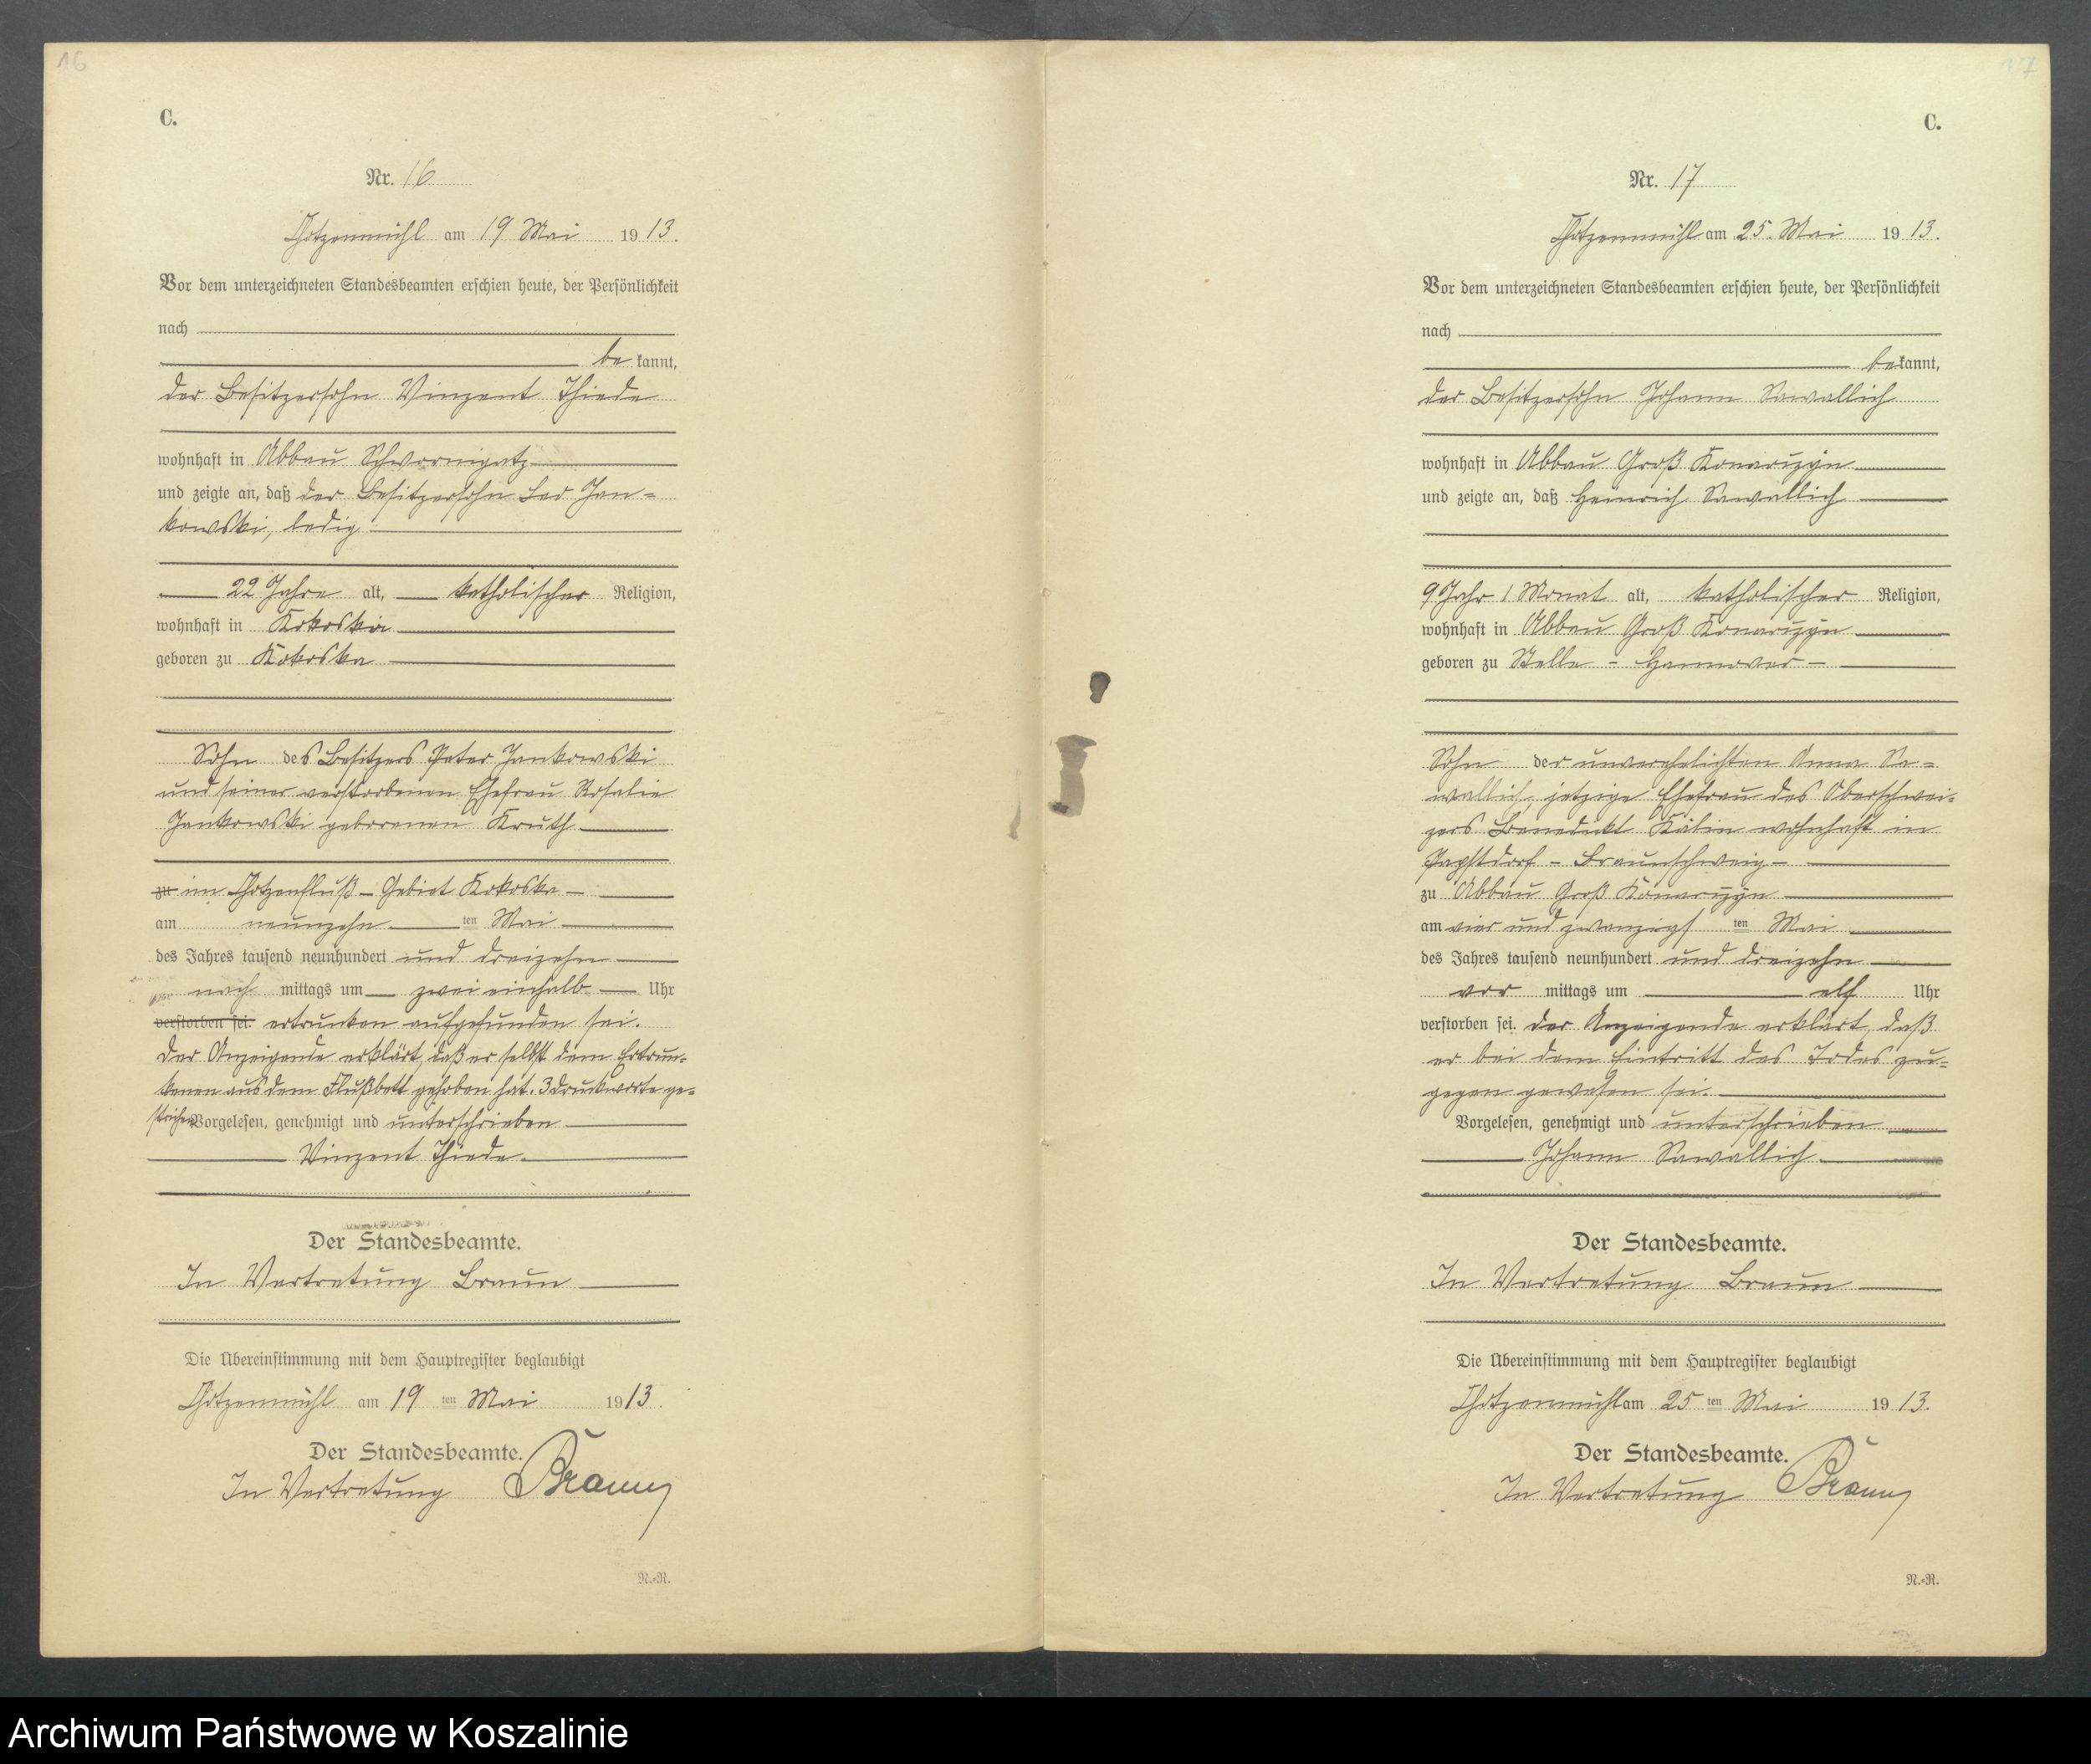 16
C.
Nr. 16
Chotzenmühl am 19 Mai 1913.
Vor dem unterzeichneten Standesbeamten erschien heute, der Persönlichkeit
nach
be kannt,
der Besitzersohn Vinzent Thiede
wohnhaft in Abbau Schwornigatz
und zeigte an, daß der Besitzersohn Leo Jan=
kowski, ledig
22 Jahre alt, katholischer Religion,
wohnhaft in Kokoska
geboren zu Kokoska
Sohn des Besitzers Peter Jankowski
und seiner verstorbenen Ehefrau Rosalie
Jankowski geborenen Kruth
zu im Chotzenfluß - Gebiet Kokoska -
am neunzehn ten Mai
des Jahres tausend neunhundert und dreizehn
nach mittags um zwei einhalb Uhr
verstorben sei. ertrunken aufgefunden sei.
Der Anzeigende erklärt, daß er selbst dem Ertrun=
kenen aus dem Flußbett gehoben hat. 3 Druckworte ge=
strichen Vorgelesen, genehmigt und unterschrieben
Vinzent Thiede.
Der Standesbeamte.
In Vertretung Braun
Die Übereinstimmung mit dem Hauptregister beglaubigt
Chotzenmühl am 19 ten Mai 1913.
Der Standesbeamte.
In Vertretung Braun
N.-R.
17
C.
Nr. 17
Chotzenmühl am 25. Mai 1913.
Vor dem unterzeichneten Standesbeamten erschien heute, der Persönlichkeit
nach
bekannt,
der Besitzersohn Johann Sawallich
wohnhaft in Abbau Groß Konarczyn
und zeigte an, daß Heinrich Sawallich
9 Jahr 1 Monat alt, katholischer Religion,
wohnhaft in Abbau Groß Konarczyn
geboren zu Stelle - Hannover -
Sohn der unverehelichten Anna Sa=
wallich, jetzige Ehefrau des Oberschwei=
zers Benedikt Kälin wohnhaft in
Papstdorf - Braunschweig -
zu Abbau Groß Konarczyn
am vier und zwanzigs ten Mai
des Jahres tausend neunhundert und dreizehn
vor mittags um elf Uhr
verstorben sei. Der Anzeigende erklärt, daß
er bei dem Eintritt des Todes zu=
gegen gewesen sei.
Vorgelesen, genehmigt und unterschrieben
Johann Sawallich.
Der Standesbeamte.
In Vertretung Braun
Die Übereinstimmung mit dem Hauptregister beglaubigt
Chotzenmühl am 25 ten Mai 1913.
Der Standesbeamte.
In Vertretung Braun
N.-R.
Archiwum Państwowe w Koszalinie